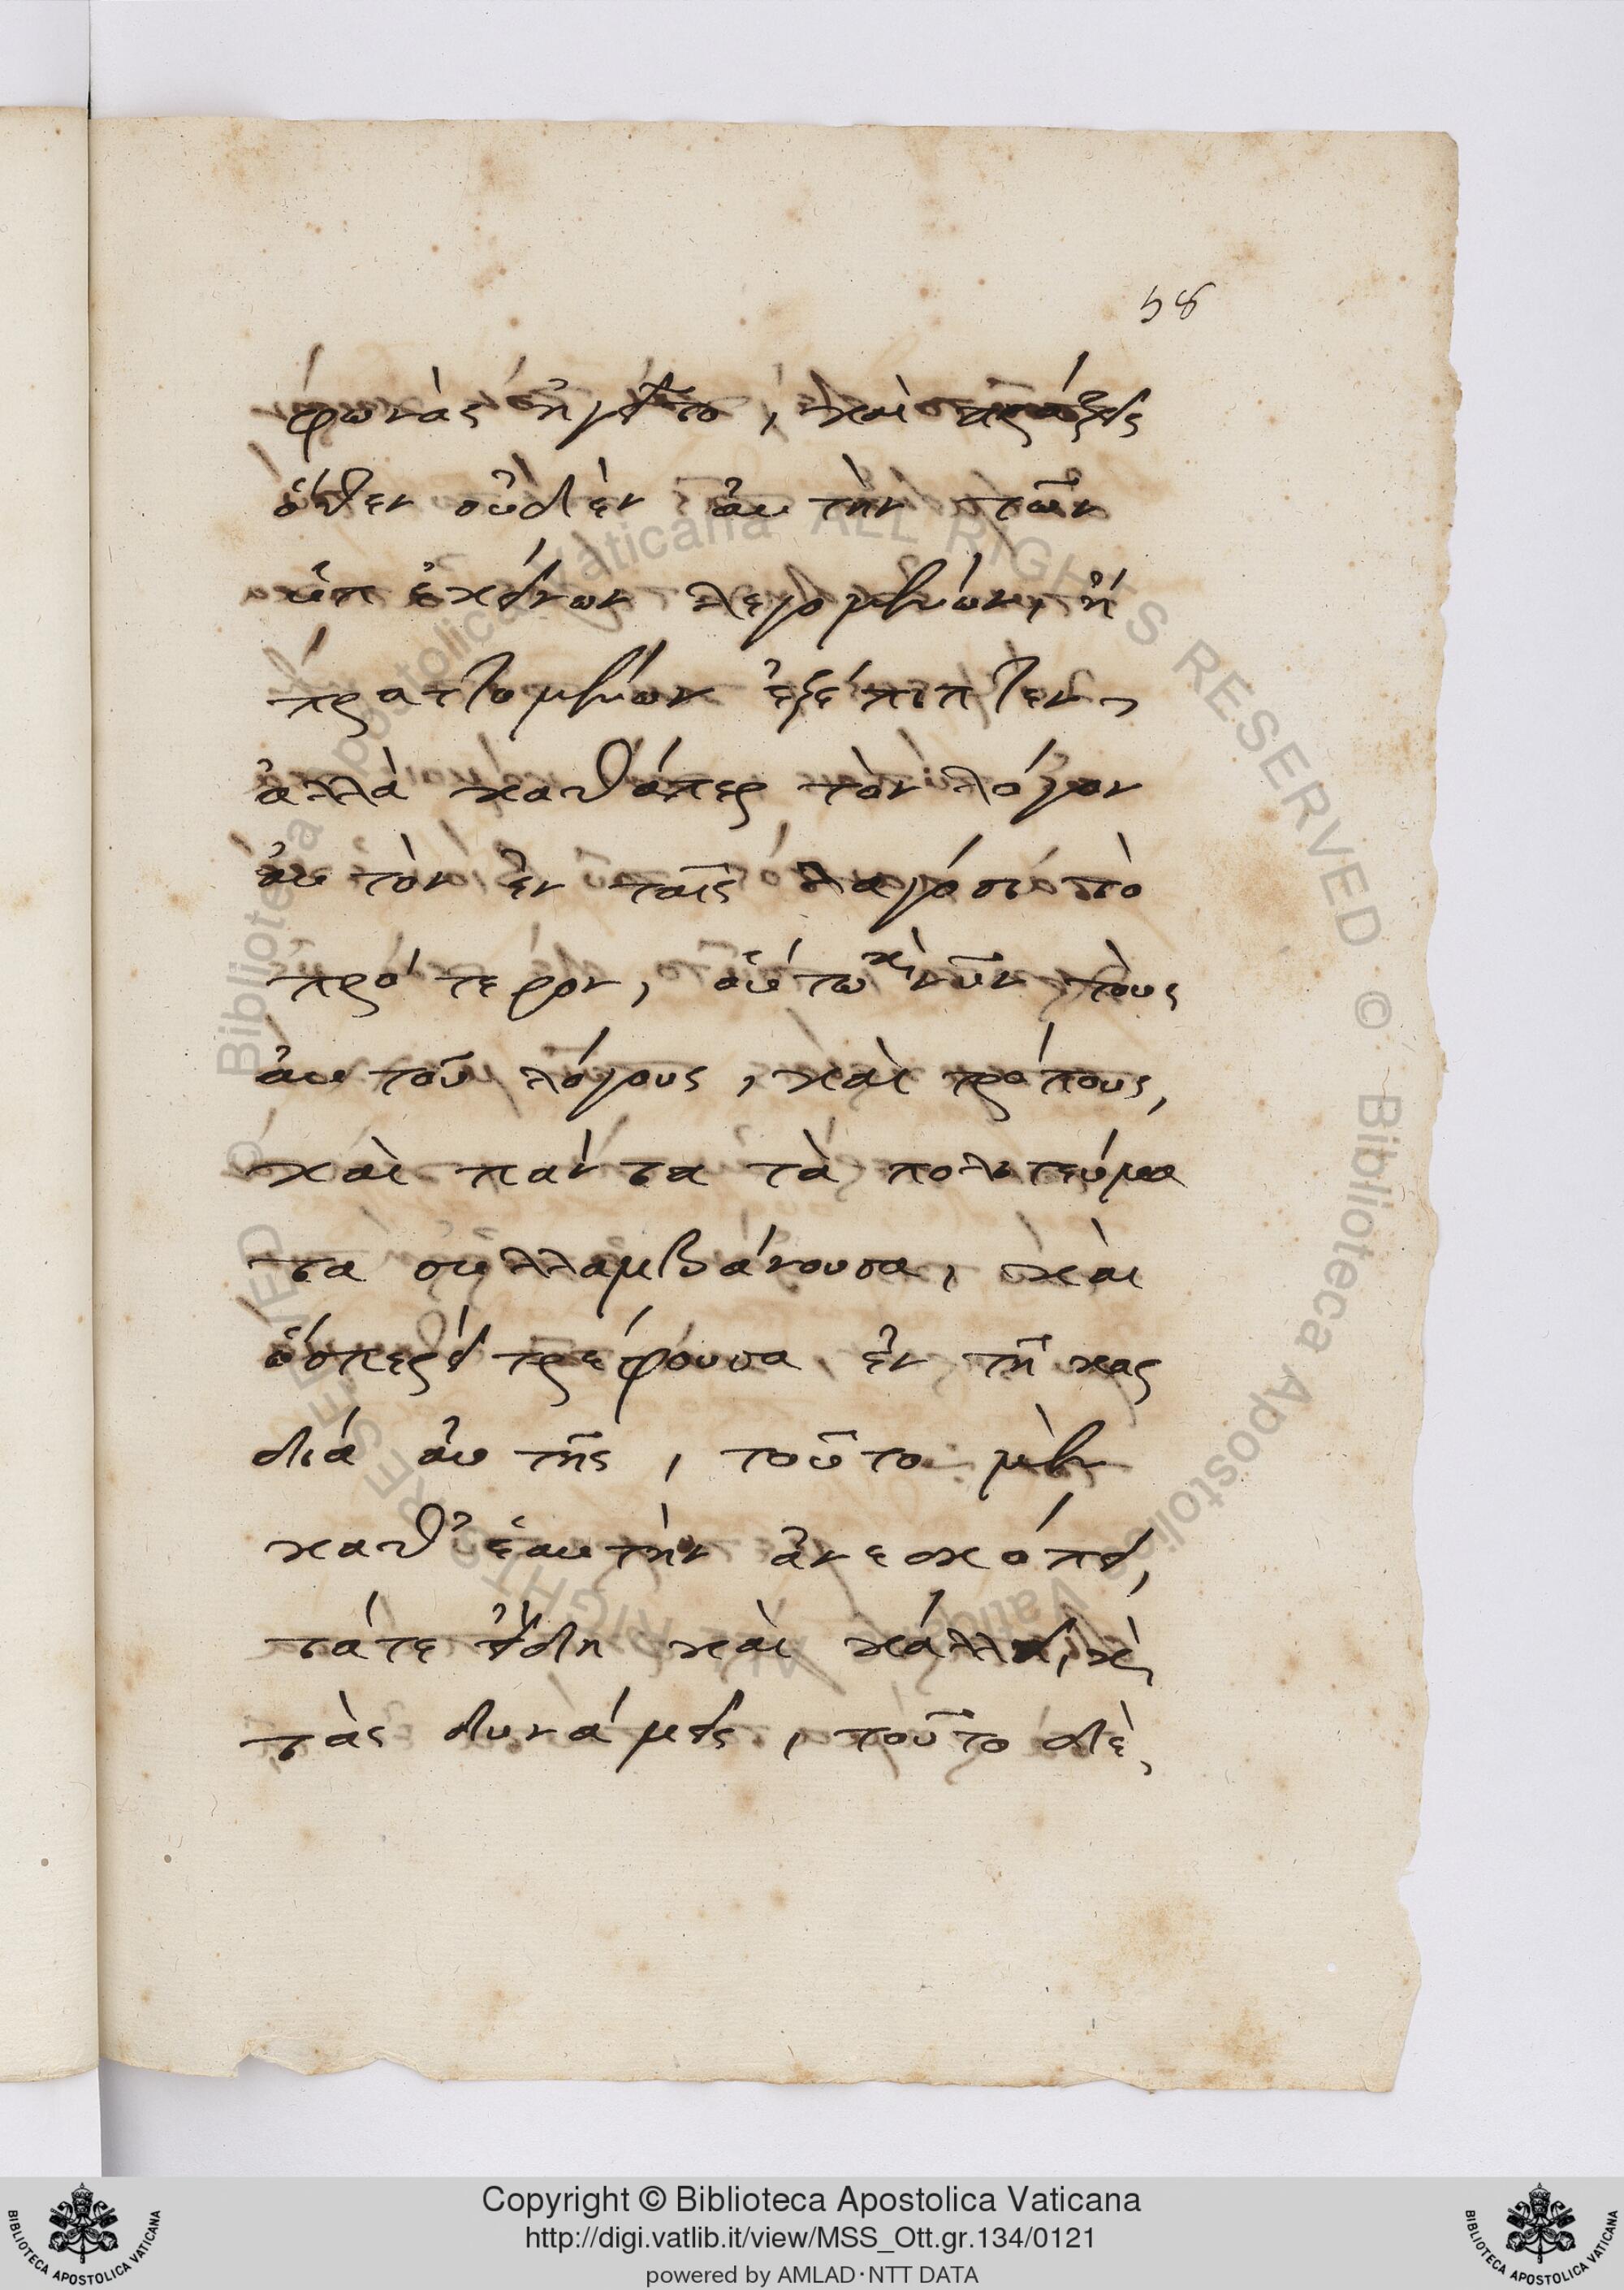 58
φωνὰς ἡγεῖτο, καὶ πράξεις
ὅθεν οὐδὲν αὐτὴν τῶν
ὑπ ἐκείνων λεγομένων, ἢ
πραττομένων ἐξέπιπτεν,
ἀλλὰ καθάπερ τὸν λόγον
αὐτὸν ἐν ταῖς λαγόσι τὸ
πρότερον, οὕτω κὶ νῦν τοὺς
αὐτοῦ λόγους, καὶ τρόπους,
καὶ πάντα τὰ πολιτεύμα
τα συλλαμβάνουσα, καὶ
ὥσπερεὶ τρέφουσα ἐν τῇ καρ
δίᾳ αὐτῆς, τοῦτο μὲν
καθ' ἑαυτὴν ἀνεσκόπει,
τάτε εἴδη καὶ κάλλει, κὶ
τὰς δυνάμεις, τοῦτο δὲ,
© Biblioteca Apostolica Vaticana ALL RIGHTS RESERVED © Biblioteca Apostolica Vaticana ALL RIGHTS RESERVED
Copyright © Biblioteca Apostolica Vaticana
http://digi.vatlib.it/view/MSS_Ott.gr.134/0121
powered by AMLAD·NTT DATA
BIBLIOTECA APOSTOLICA VATICANA
BIBLIOTECA APOSTOLICA VATICANA